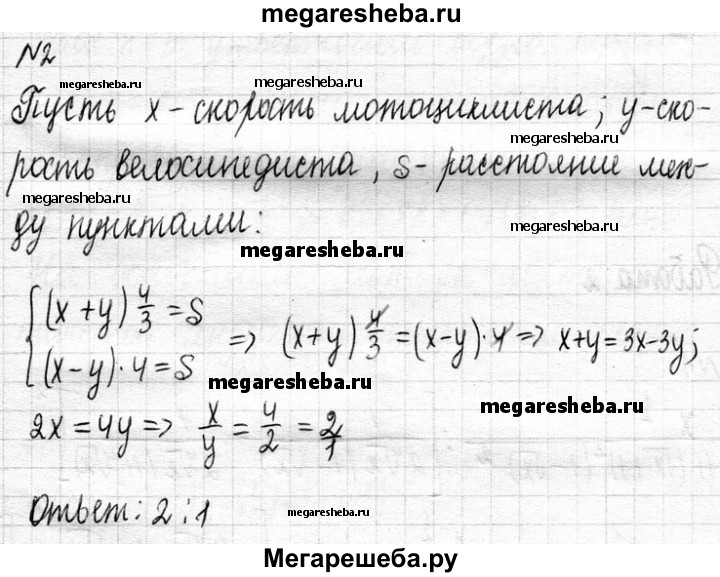 megaresheba.ru
N2
megaresheba.ru
megaresheba.ru
Пусть x - скорость мотоциклиста; y - ско-
megaresheba.ru
рость велосипедиста, s - расстояние меж-
megaresheba.ru
megaresheba.ru
ду пунктами:
megaresheba.ru
{(x+y) 4/3 = S
(x-y)·4=S => (x+y) 4/3 = (x-y)·4 => x+y=3x-3y;
megaresheba.ru
megaresheba.ru
2x=4y => x/y = 4/2 = 2/1
Ответ: 2:1
megaresheba.ru
Мегарешеба.ру